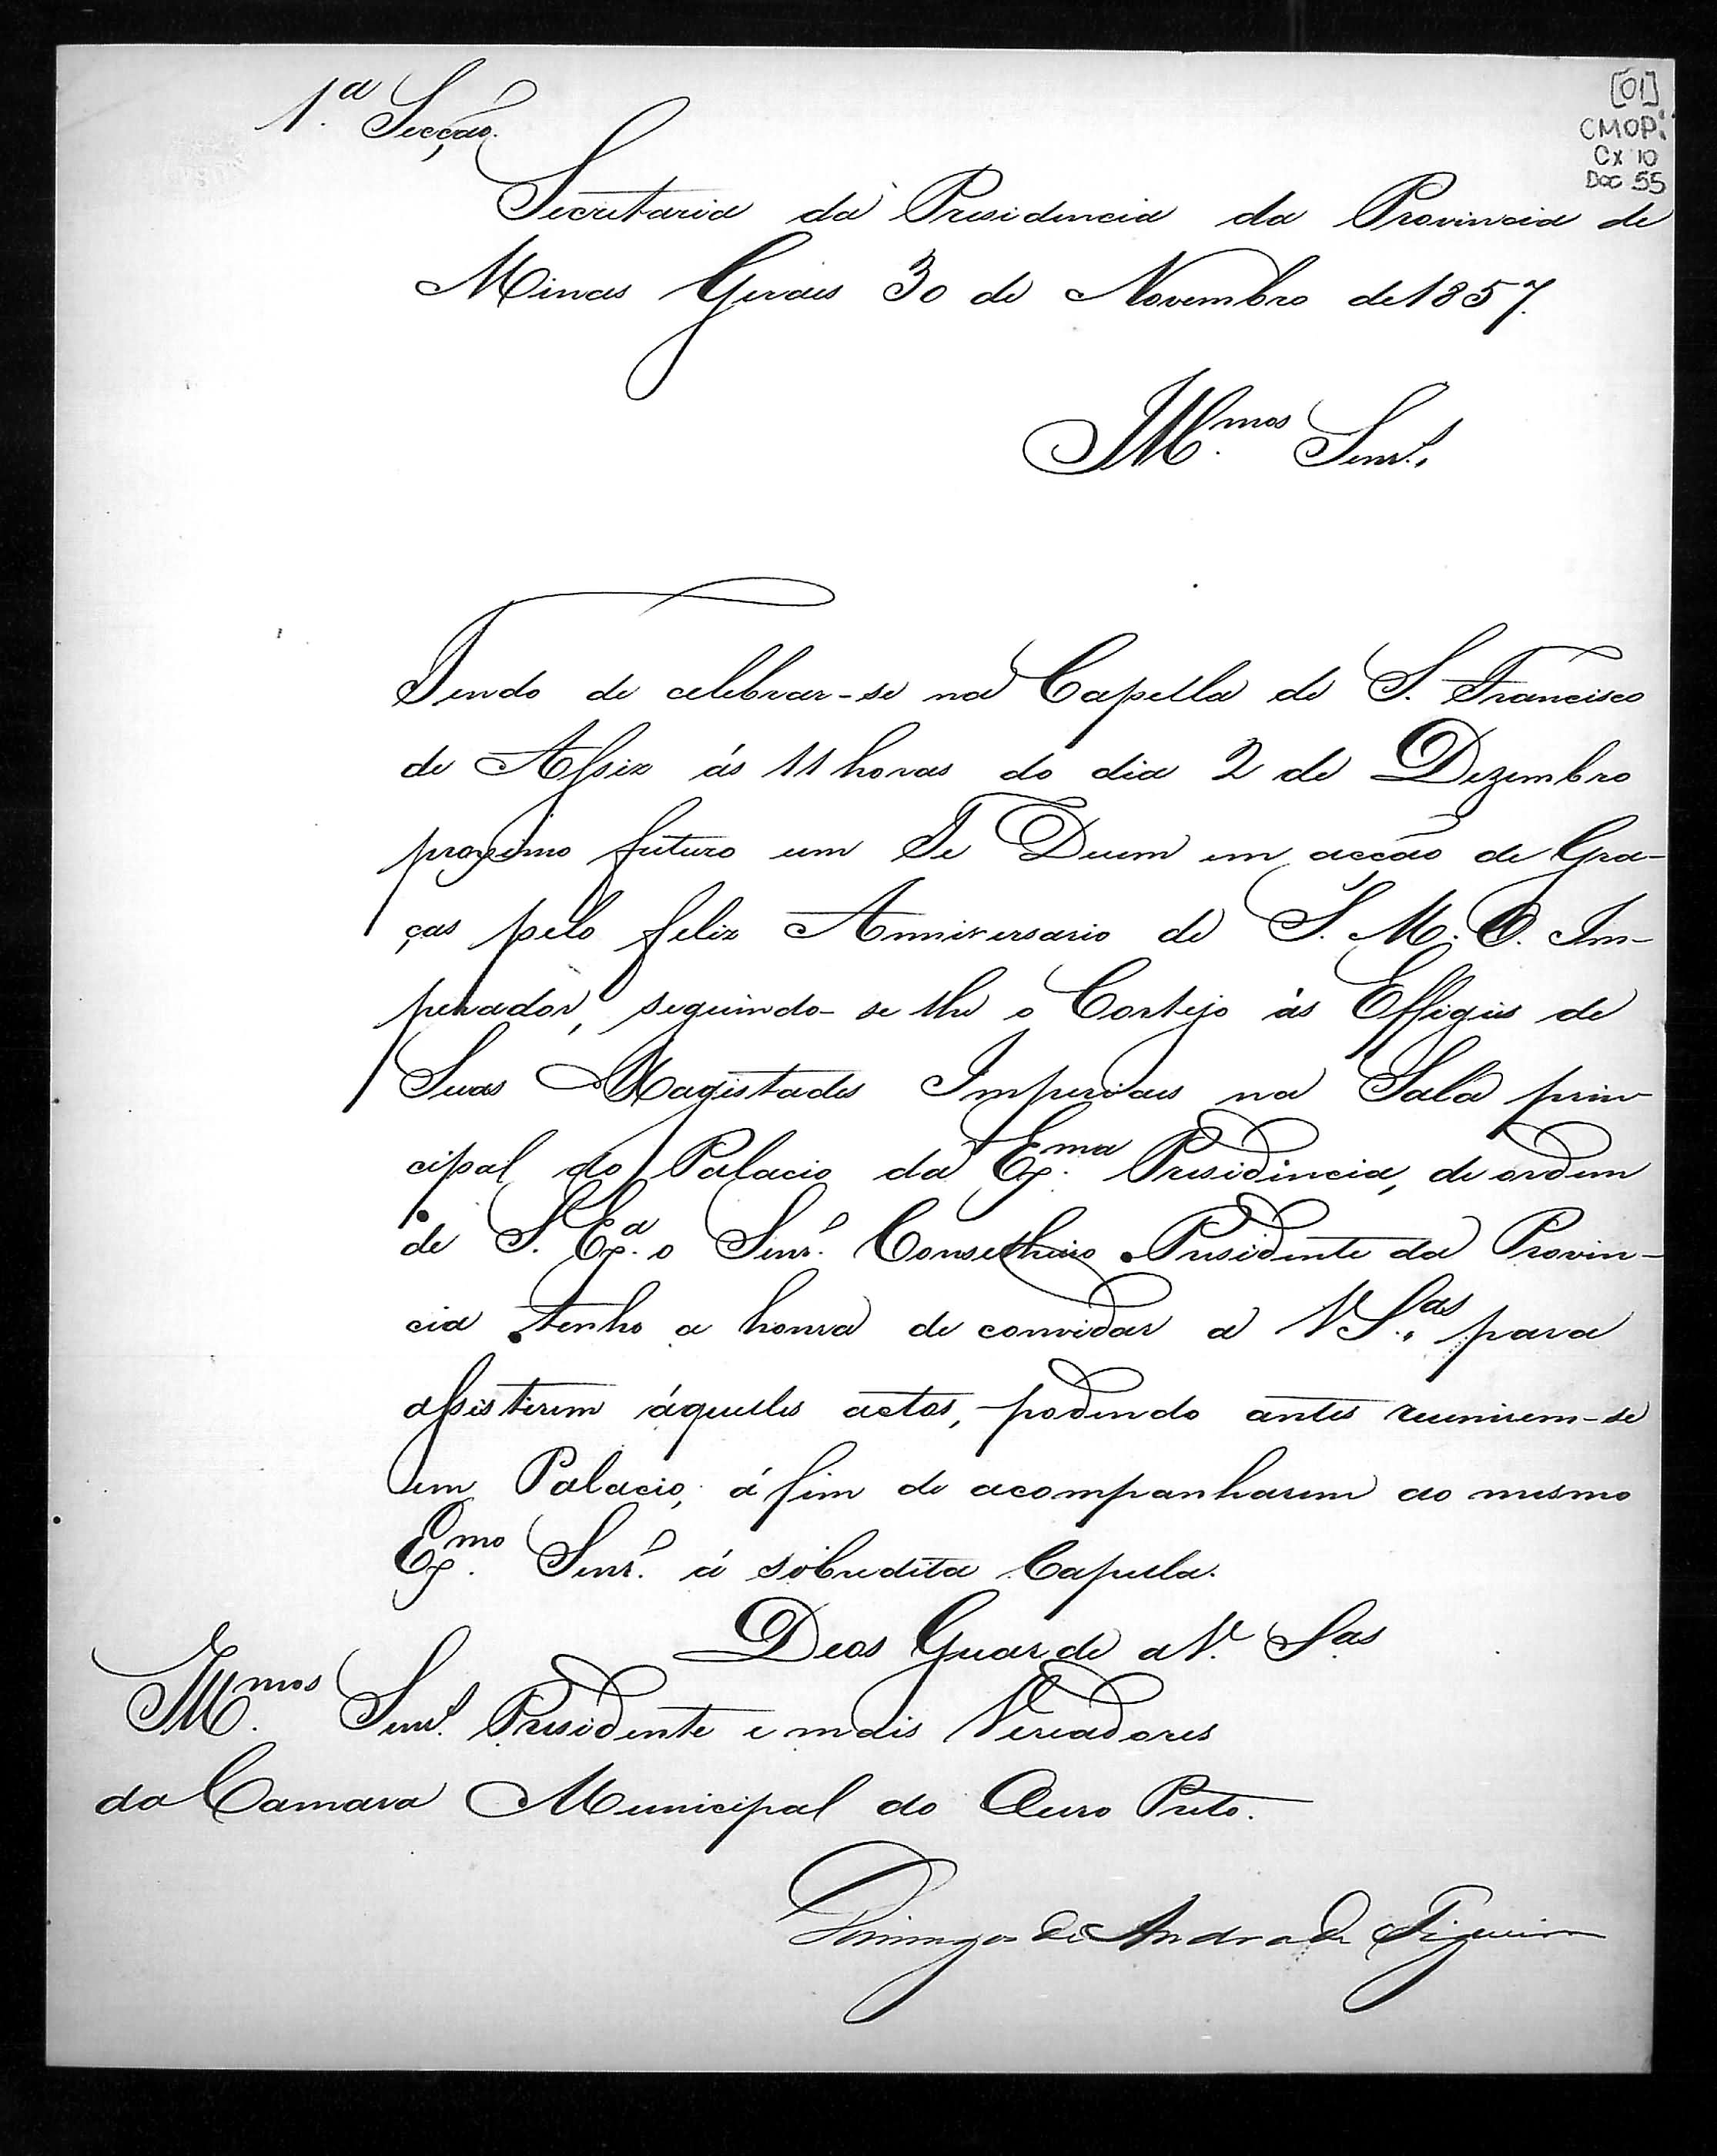 1.ª Secção.
[01]
CMOP.
Cx 10
Doc 55
Secretaria da Presidencia da Provincia de
Minas Geraes 30 de Novembro de 1857.
Ill.mos Senr.s
Tendo de celebrar-se na Capella de S. Francisco
de Assiz ás 11 horas do dia 2 de Dezembro
proximo futuro um Te Deum em acção de Gra-
ças pelo feliz Anniversario de S. M. O. Im-
perador, seguindo-se lhe o Cortejo ás Effigies de
Suas Magestades Imperiaes na Sala prin-
cipal do Palacio da Ex.ma Presidencia, de ordem
de S. Ex.ª o Senr. Conselheiro Presidente da Provin-
cia tenho a honra de convidar a V S.as para
assistirem áquelles actos, podendo antes reunirem-se
em Palacio, á fim de acompanharem ao mesmo
Ex.mo Senr. á sobredita Capella.
Deos Guarde a V. S.as
Ill.mos Senr.s Presidente e mais Vereadores
da Camara Municipal do Ouro Preto.
Domingos de Andrade Figueira